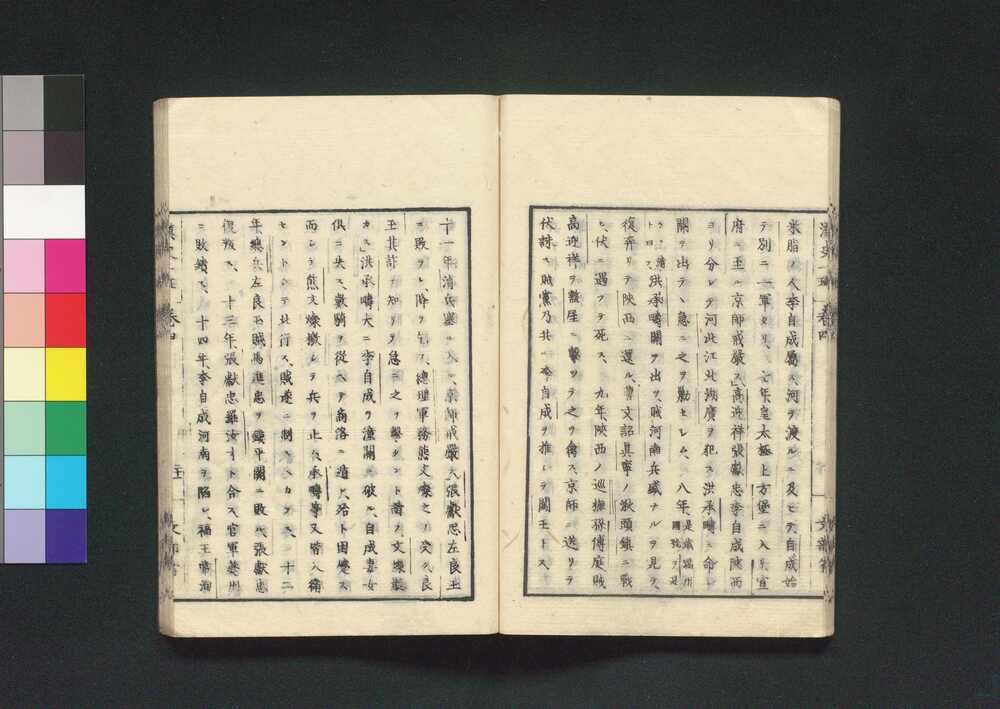 米脂ノ人李自成屬ス河ヲ渡ルニ及ビテ自成始
テ別ニ一軍タリ、七年皇太極上方堡ニ入リ宣
府ニ至ル京師戒嚴ス、高迎祥張獻忠李自成陝西
ヨリ分レテ河北江北湖廣ヲ犯ス洪承疇ニ命シ
關ヲ出テヽ急ニ之ヲ勦セシム、八年、是歲滿州國號ヲ
洪承疇關ヲ出ヅ賊河南兵盛ナルヲ見テ、
復奔リテ陝西ニ還ル、曹文詔真寧ノ湫頭鎮ニ戰
ヒ、伏ニ遇フテ死ス、九年陝西ノ巡撫孫傳庭賊
高迎祥ヲ盩厔ニ擊ツテ之ヲ禽ス、京師ニ送リテ
伏誅ス賊黨乃共ニ李自成ヲ推シテ闖王トス、
十一年清兵塞ニ入ル京師戒嚴ス張獻忠左良玉
ニ敗ラレ降ヲ乞フ、總理軍務熊文燦之ヲ受ク良
玉其詐ヲ知リ急ニ之ヲ擊タント請フ、文燦
カス、洪承疇大ニ李自成ヲ潼關ニ破ル、自成妻女
俱ニ失ス、數騎ヲ從ヘテ商洛ニ遁ル、
而シテ熊文燦檄シテ兵ヲ止ム承疇等又皆入補
セントシテ北行ス、賊遂ニ制スヘカラス、十二
年總兵左良玉賊馬進忠ヲ鎮平關ニ敗ル、張獻忠
復叛ス、十三年張獻忠羅汝才ト合ス官軍夔州
ニ敗績ス、十四年李自成河南ヲ陷レ、福王常洵